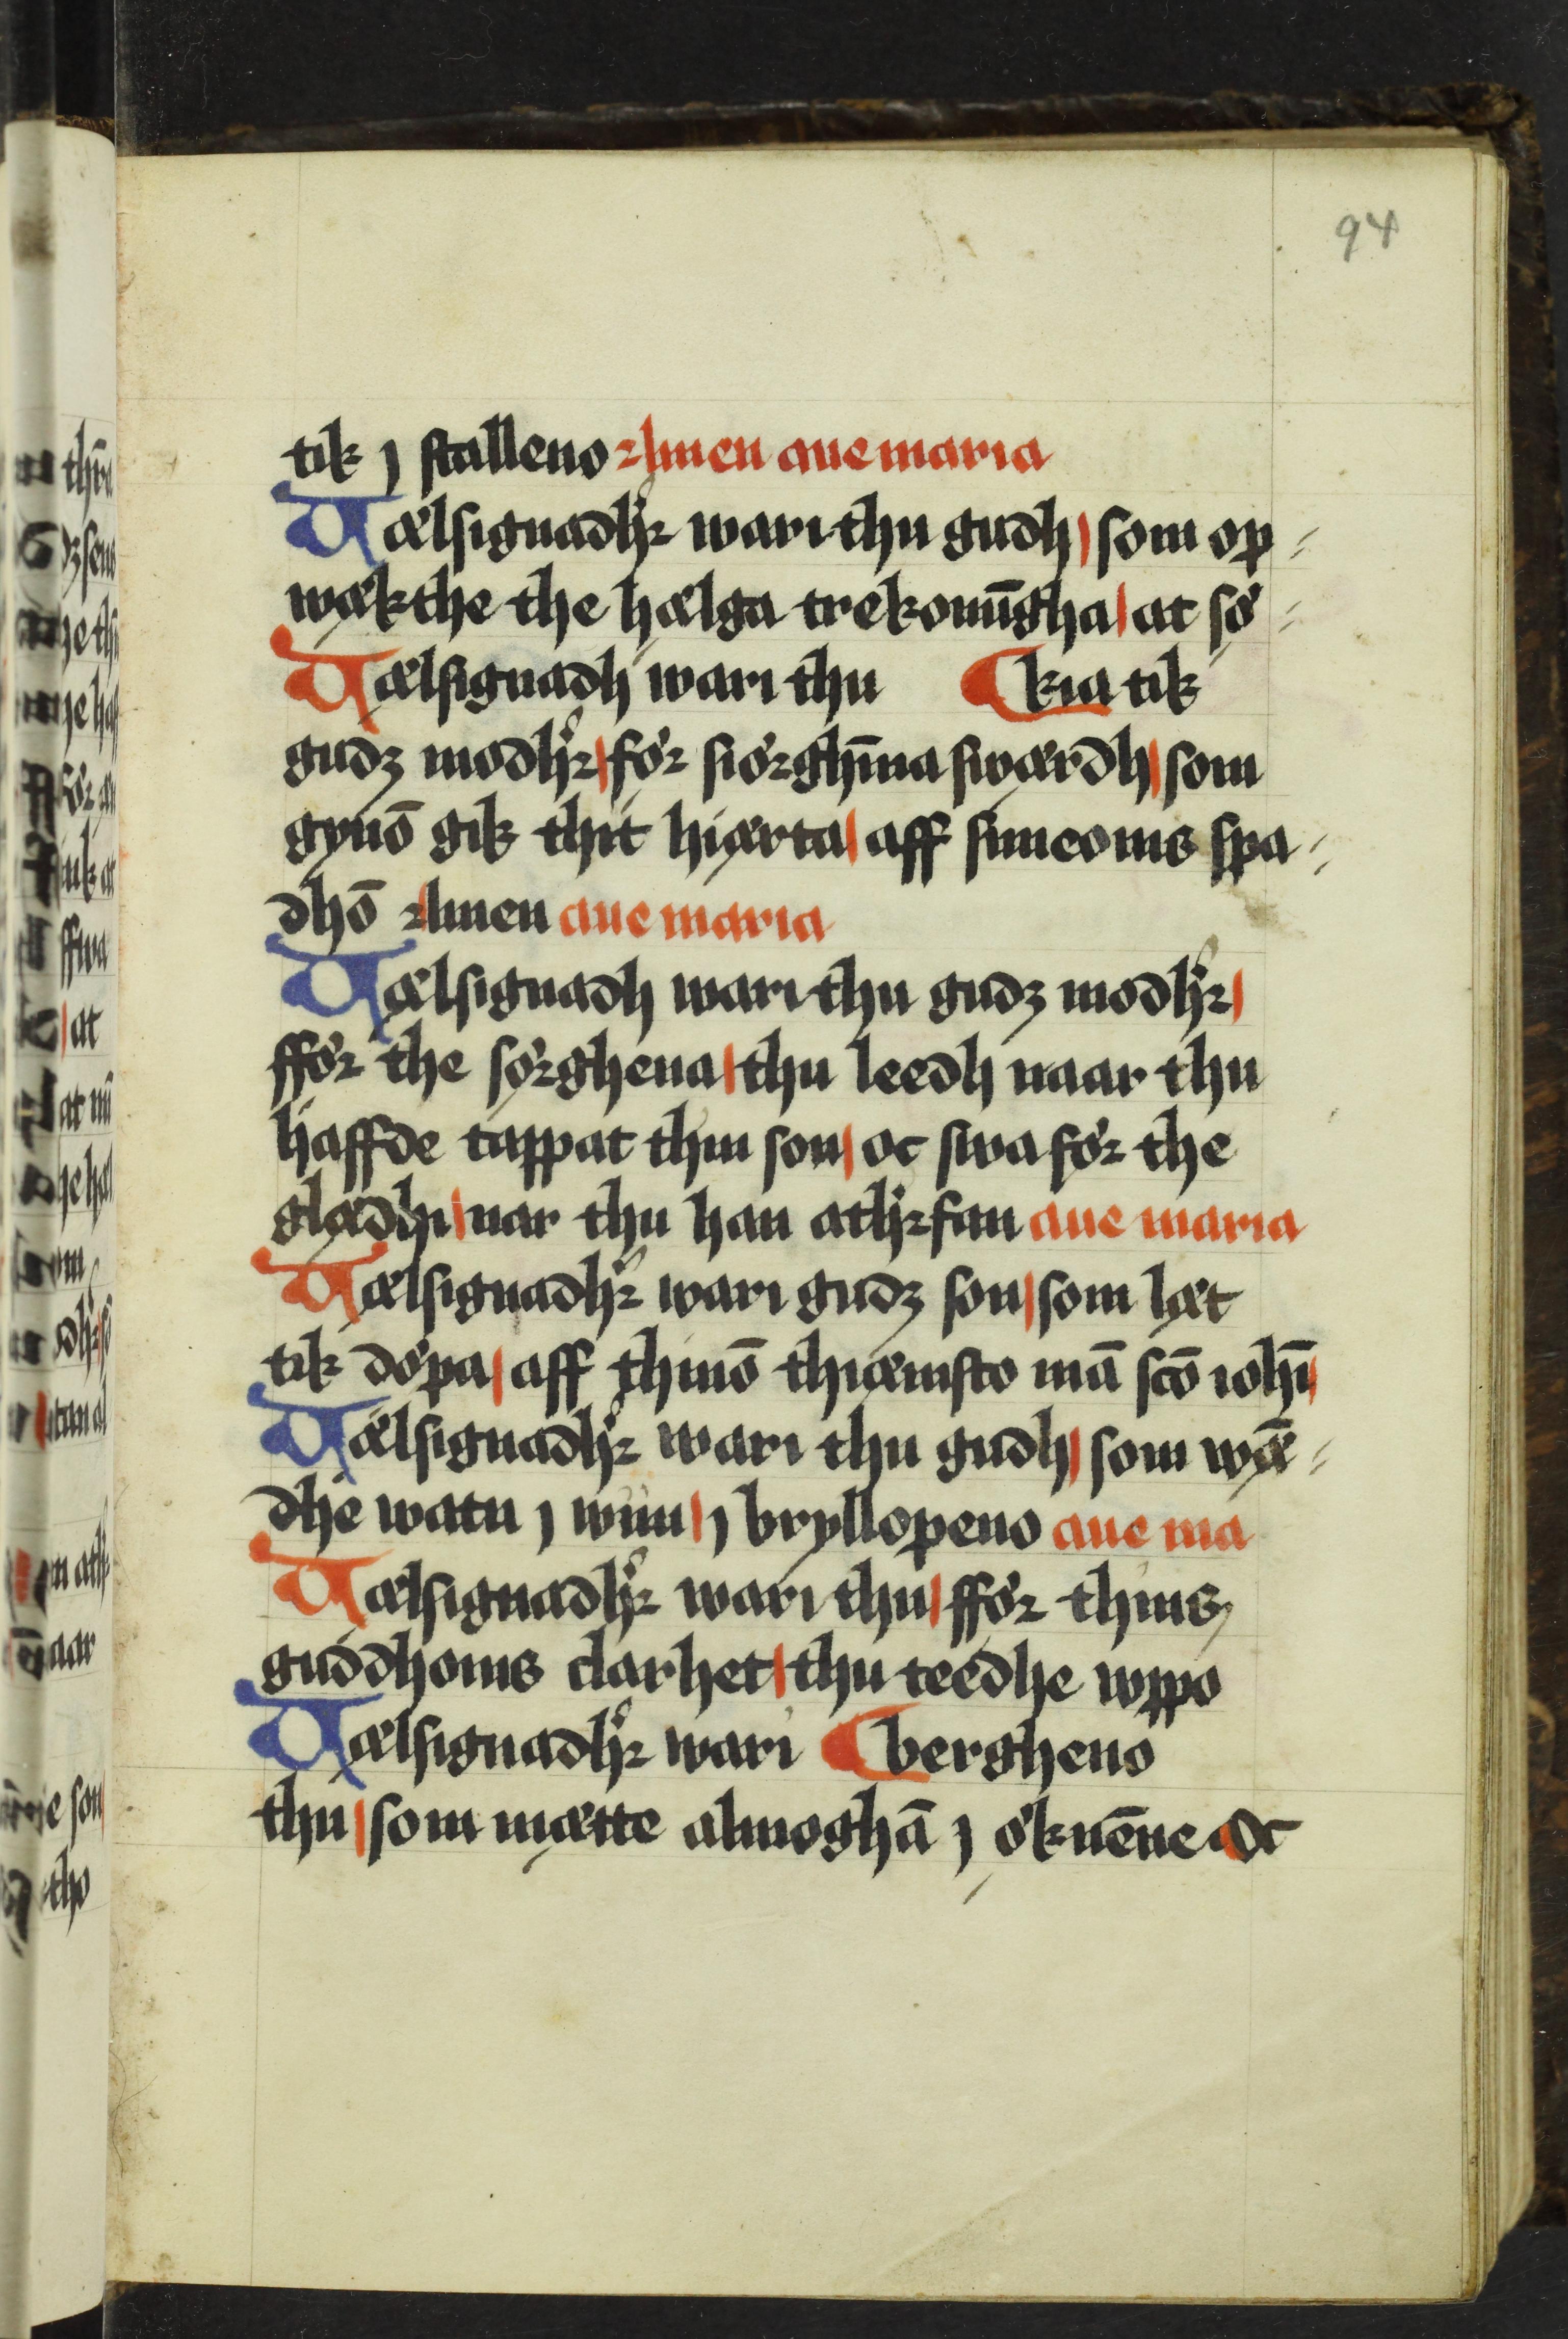 94
tik j stalleno Amen aue maria
Uælsignadh̓ꝛ wari thu gudh som op=
wækthe the hælga trekonūgha at sø=
Uælsignadh wari thu ¶ kia tik
gudz modh̓ꝛ før siørghīna swærdh som
gynō gik thit hiærta aff simeonis spa=
dhō Amen aue maria
Uælsignadh wari thu gudz modh̓ꝛ
ffør the sørghena thu leedh naar thu
haffde tappat thin son oc swa før the
glædhi nar thu han ath̓ꝛ fan aue maria
Uælsignadh̓ꝛ wari gudz son som læt
tik døpa aff thinō thiænisto mā scō iohī
Uælsignadh̓ꝛ wari thu gudh som wǣ=
dhe watn j wiin j bryllopeno aue ma
Uælsignadh̓ꝛ wari thu ffør thins
guddhoms clarhet thu teedhe wppo
Uælsignadh̓ꝛ wari ¶ bergheno
thu som mætte almoghā j øknēne Oc